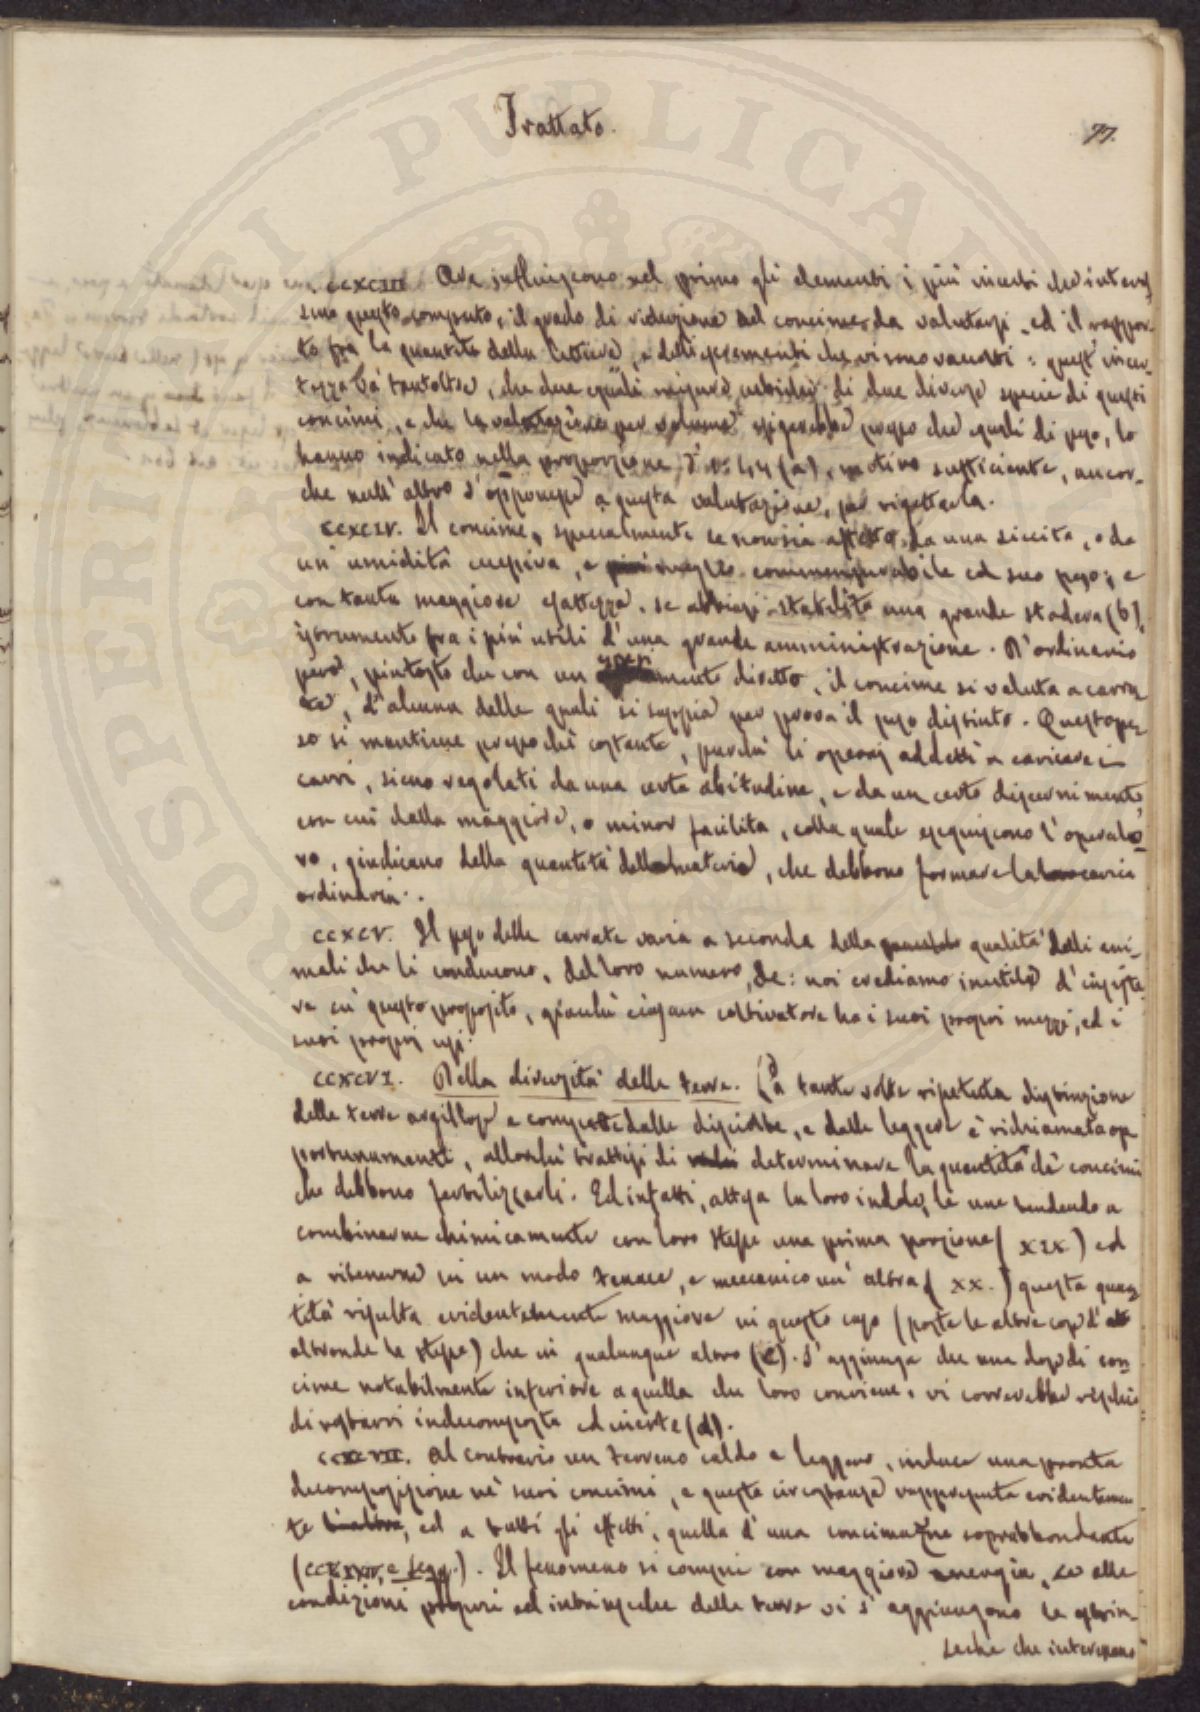 Trattato.
77.
CCXCIII. Ora influiscono nel primo gli elementi i più incerti che interes
sino questo computo, il grado di riduzione del concime da valutarsi, ed il rappor-
to fra la quantità della lettiera, e delli escrementi che vi sono raccolti: quest' incer-
tezza fà tantoltre, che due eguali misure cubiche di due diverse specie di questi
concimi, e che la valutazione per volume presso che eguali di peso, lo
hanno indicato nella proporzione d' 1: 44 (a), motivo sufficiente, ancor-
che null' altro s' opponesse a questa valutazione, per rigettarla.
CCXCIV. Il concime, specialmente se non sia affetto da una siccità, o da
un' umidità eccessiva, è commensurabile col suo peso; e
con tanta maggiore esattezza, se abbiasi stabilito una grande stadera (b),
istrumento fra i più utili d' una grande amministrazione. D' ordinario
però, piutosto che con un mento diretto, il concime si valuta a carra
te, d' alcuna delle quali si sappia per prova il peso distinto. Questo pe
so si mantiene presso chè costante, purchè li operaj addetti a caricare i
carri, sieno regolati da una certa abitudine, e da un certo discernimento
con cui dalla maggiore, o minor facilità, colla quale eseguiscono l' operato
ro, giudicano della quantità della materia, che debbono formare la carica
ordinaria.
CCXCV. Il peso delle carrate varia a seconda della qualità delli ani-
mali che li conducono, del loro numero, &c: noi crediamo inutile d' insiste-
re su questo proposito, giacchè ciascun coltivatore ha i suoi proprj mezzi, ed i
suoi proprj usi.
CCXCVI. Della diversità delle terre. La tante volte ripetuta distinzione
delle terre argillose e compatte dalle disciolte, e dalle leggere è richiamata op
portunamente, allorchè trattisi di determinare la quantità de' concimi
che debbono fertilizzarli. Ed infatti, attesa la loro indole, le une tendendo a
combinarne chimicamente con loro stesse una prima porzione (XIX) ed
a ritenerne in un modo tenace, e meccanico un' altra (XX.) questa quan
tità risulta evidentemente maggiore in questo caso (poste le altre cose d'
altronde le stesse) che in qualunque altro (c). S' aggiunga che una dose di con-
cime notabilmente inferiore a quella che loro conviene, vi correrebbe rischio
di restarvi indecomposta ed inerte (d).
CCXCVII. Al contrario un terreno caldo e leggero, induce una pronta
decomposizione ne' suoi concimi, e questa circostanza rappresenta evidentemen
te, ed a tutti gli effetti, quella d' una concimazione soprabbondante
(CCXXIV, e segg.). Il fenomeno si compie con maggiore energia, se alle
condizioni proprie ed intrinseche delle terre vi s' aggiungono le estrin
seche che interessano